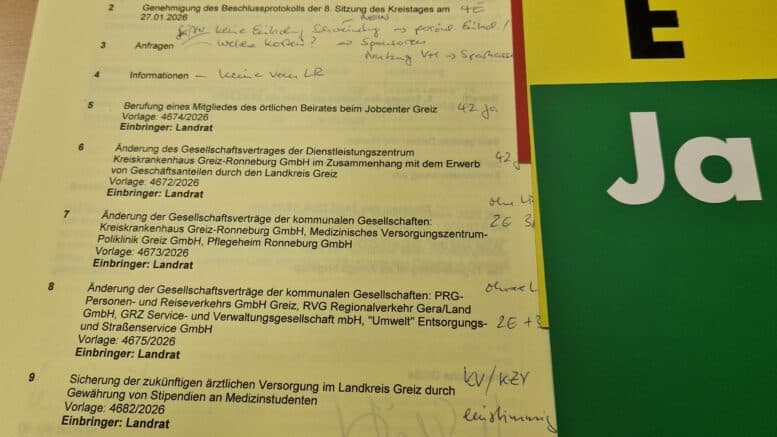 2 Genehmigung des Beschlussprotokolls der 8. Sitzung des Kreistages am 4E
27.01.2026
keine
3 Anfragen welche Kosten? → Sponsoren
Nutzung → Sparkasse
4 Informationen – keine vom LR
5 Berufung eines Mitgliedes des örtlichen Beirates beim Jobcenter Greiz 42 Ja
Vorlage: 4674/2026
Einbringer: Landrat
6 Änderung des Gesellschaftsvertrages der Dienstleistungszentrum 42 J
Kreiskrankenhaus Greiz-Ronneburg GmbH im Zusammenhang mit dem Erwerb
von Gesellschaftsanteilen durch den Landkreis Greiz
Vorlage: 4672/2026
Einbringer: Landrat
ohne
7 Änderung der Gesellschaftsverträge der kommunalen Gesellschaften: 2E 3
Kreiskrankenhaus Greiz-Ronneburg GmbH, Medizinisches Versorgungszentrum-
Poliklinik Greiz GmbH, Pflegeheim Ronneburg GmbH
Vorlage: 4673/2026
Einbringer: Landrat
8 Änderung der Gesellschaftsverträge der kommunalen Gesellschaften: PRG-
Personen- und Reiseverkehrs GmbH Greiz, RVG Regionalverkehr Gera/Land
GmbH, GRZ Service- und Verwaltungsgesellschaft mbH, "Umwelt" Entsorgungs- 2E +3
und Straßenservice GmbH
Vorlage: 4675/2026
Einbringer: Landrat
9 Sicherung der zukünftigen ärztlichen Versorgung im Landkreis Greiz durch KV/KZV
Gewährung von Stipendien an Medizinstudenten
Vorlage: 4682/2026 einstimmig
Einbringer: Landrat
E
Ja